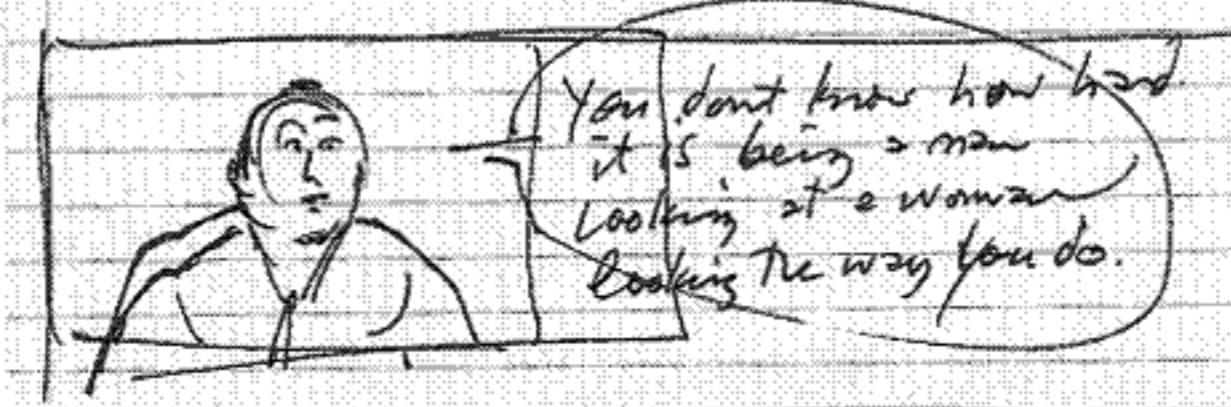 You dont know how hard
it is being a man
looking at a woman
looking the way you do.